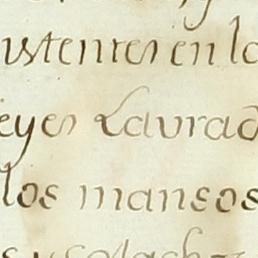 ustentes en lo
eyes Laurad
los mansos